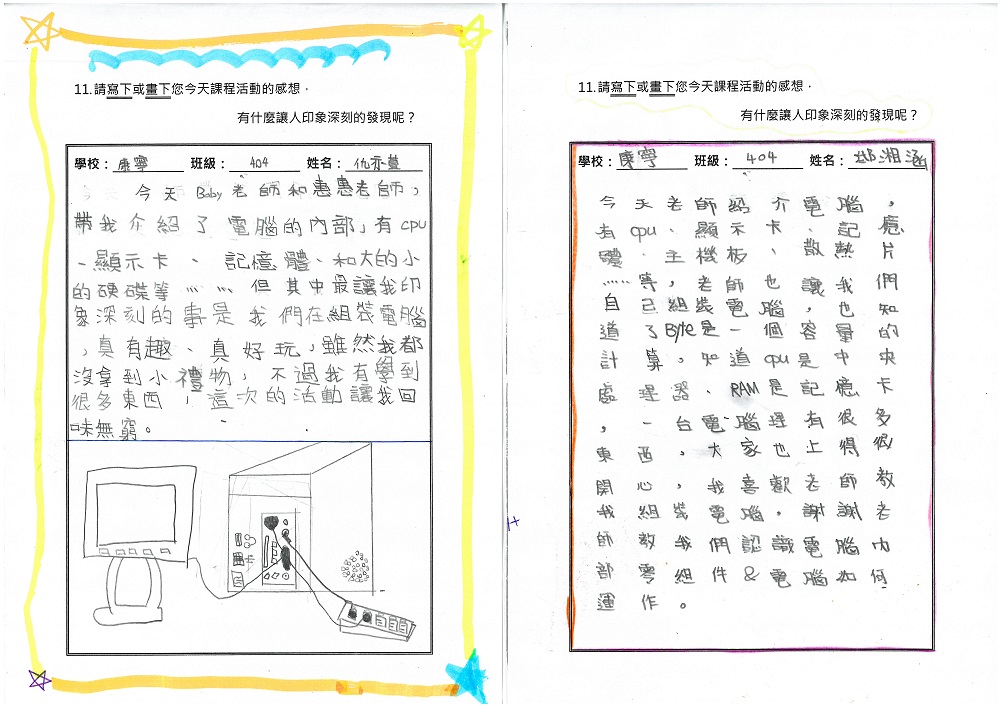 11.請寫下或畫下您今天課程活動的感想，
有什麼讓人印象深刻的發現呢？
學校：康寧 班級：404 姓名：仇亦萱
今天Baby老師和惠惠老師，
帶我介紹了電腦的內部，有cpu
、顯示卡、記憶體、和大的小
的硬碟等……但其中最讓我印
象深刻的事是我們在組裝電腦
，真有趣、真好玩，雖然我都
沒拿到小禮物，不過我有學到
很多東西，這次的活動讓我回
味無窮。
11.請寫下或畫下您今天課程活動的感想，
有什麼讓人印象深刻的發現呢？
學校：康寧 班級：404 姓名：邱湘涵
今天老師紹介電腦，
有cpu、顯示卡、記憶
體、主機板、散熱片
……等，老師也讓我們
自己組裝電腦，也知
道了Byte是一個容量的
計算，知道cpu是中央
處理器、RAM是記憶卡
，一台電腦理有很多
東西，大家也上得很
開心，我喜歡老師教
我組裝電腦，謝謝老
師教我們認識電腦內
部零組件&電腦如何
運作。